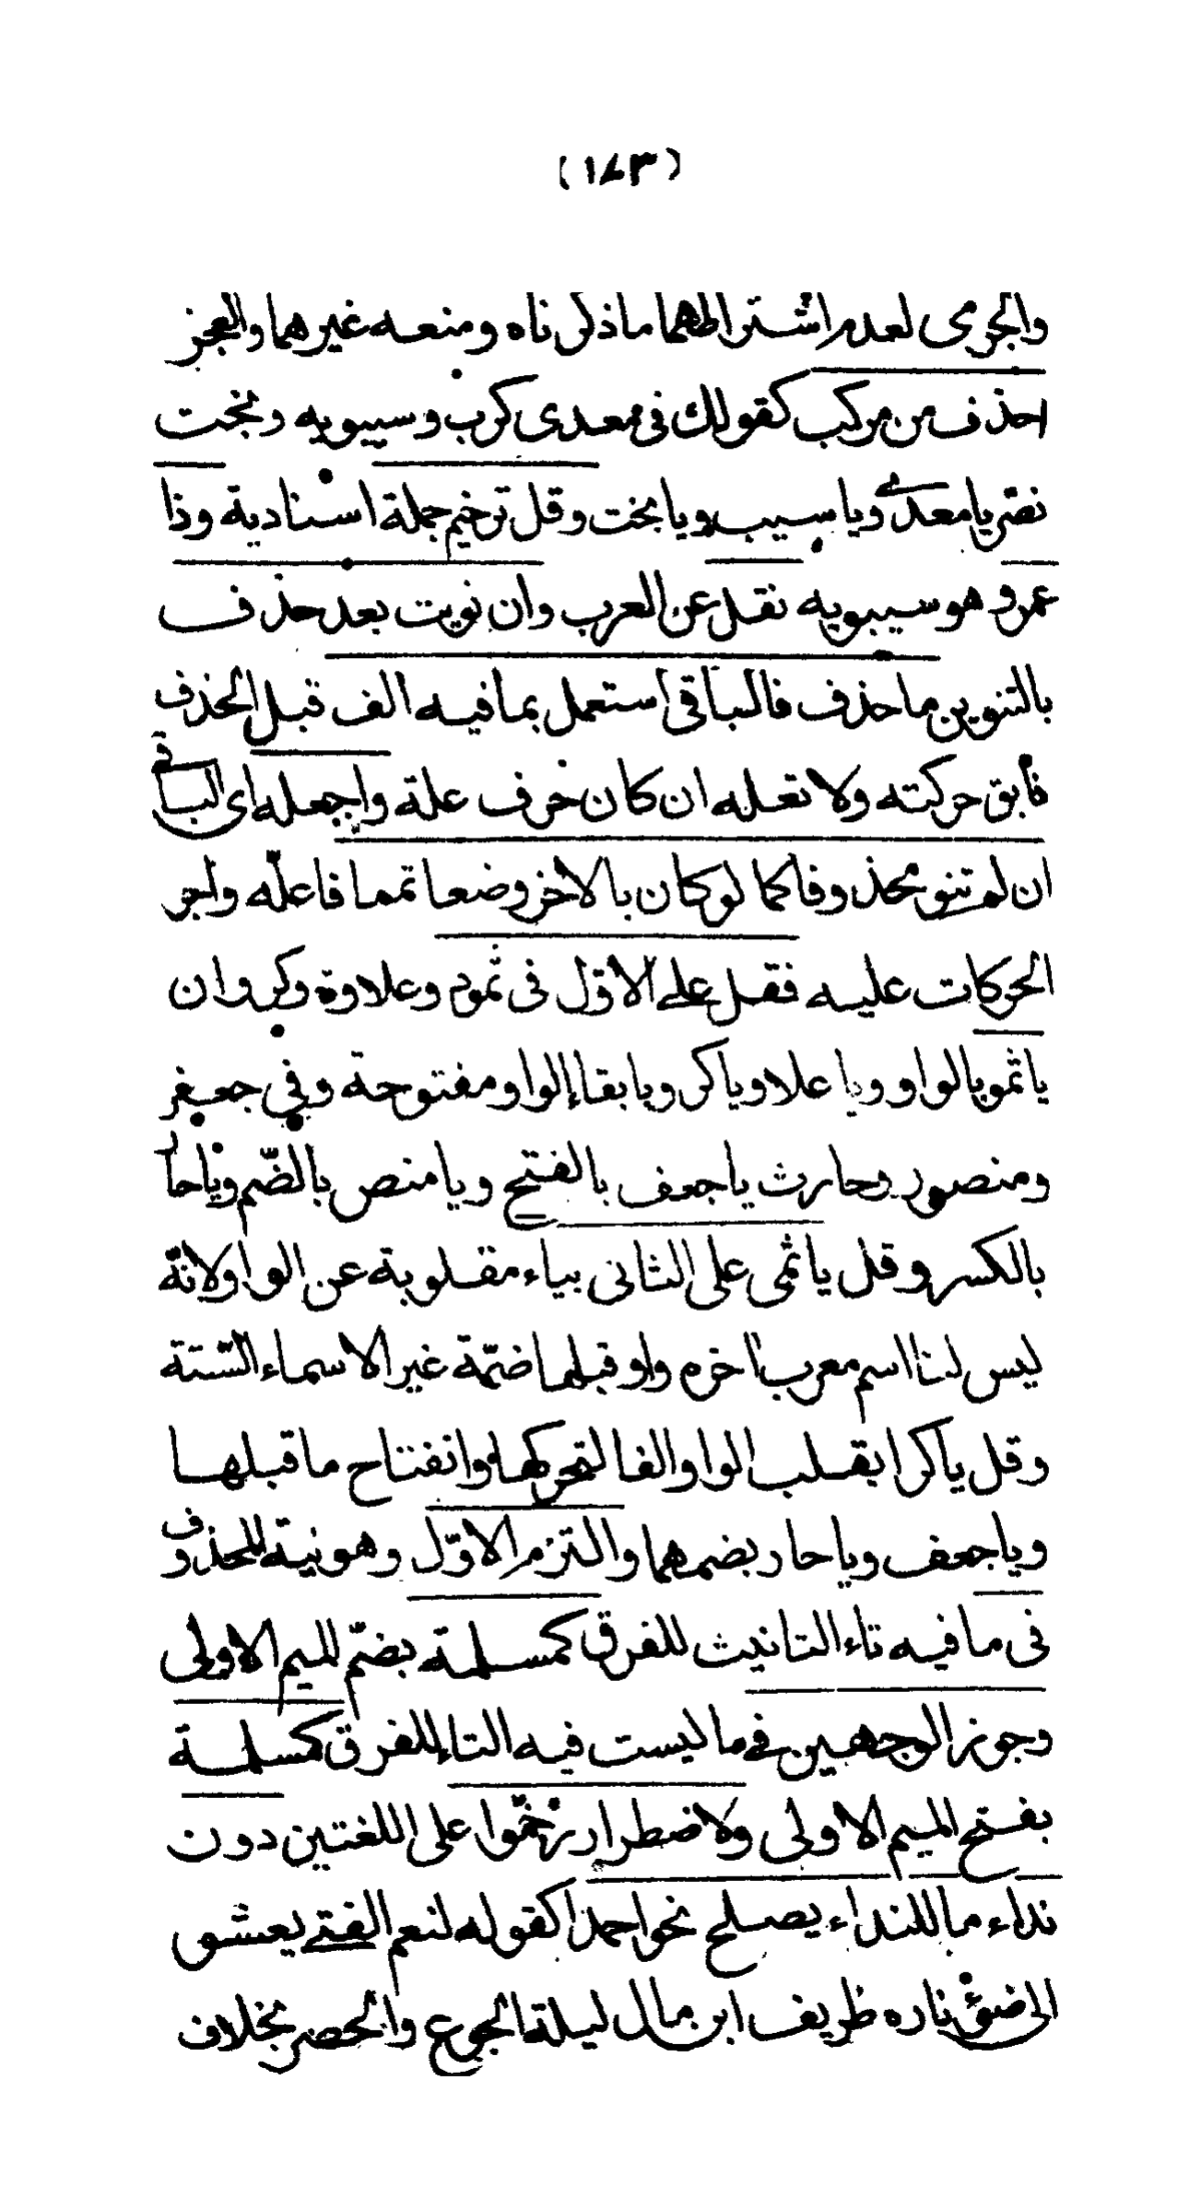 (١٨٣)
والجرمى لعدم اشتراطهما ما ذكرناه ومنعه غيرهما والعجز
احذف من مركب كقولك فى معدى كرب وسيبويه وبخت
نصر يا معدى ويا سيب ويا بخت وقل ترخيم جملة اسنادية وذا
عمرو هو سيبويه نقل عن العرب وان نويت بعد حذف
بالتنوين ما حذف فالباقى استعمل بما فيه الف قبل الحذف
فأبق حركته ولا تعله ان كان حرف علة واجعله اى الباقى
ان لم تنو محذوفا كما لو كان بالاخر وضعا تمما فاعلّه واجر
الحركات عليه فقل على الاوّل فى ثمود وعلاوة وكروان
يا ثمو بالواو ويا علاو ويا كرو بابقاء الواو مفتوحة وفى جعفر
ومنصور وحارث يا جعف بالفتح ويا منص بالضّم ويا حار
بالكسر وقل يا ثمى على الثانى بياء مقلوبة عن الواو لانّه
ليس لنا اسم معرب اخره واو قبلها ضمّة غير الاسماء الستّة
وقل يا كرا بقلب الواو الفا لتحركها وانفتاح ما قبلها
ويا جعف ويا حار بضمهما والتزم الاوّل وهو نية المحذوف
فى ما فيه تاء التانيث للفرق كمسلمة بضمّ الميم الاولى
وجوز الوجهين فى ما ليست فيه التاء للفرق كمسلمة
بفتح الميم الاولى ولاضطرار رخّموا على اللغتين دون
نداء ما للنداء يصلح نحو احمدا كقوله لنعم الفتى يعشو
الى ضوء ناره ظريف ابن مال ليلة الجوع والحصر بخلاف